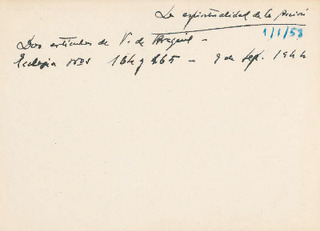 La espiritualidad de la Acción
1/1/58
Dos artículos de V. de
Ecclesia nros 164 y 165 - 9 de Sept. 1944